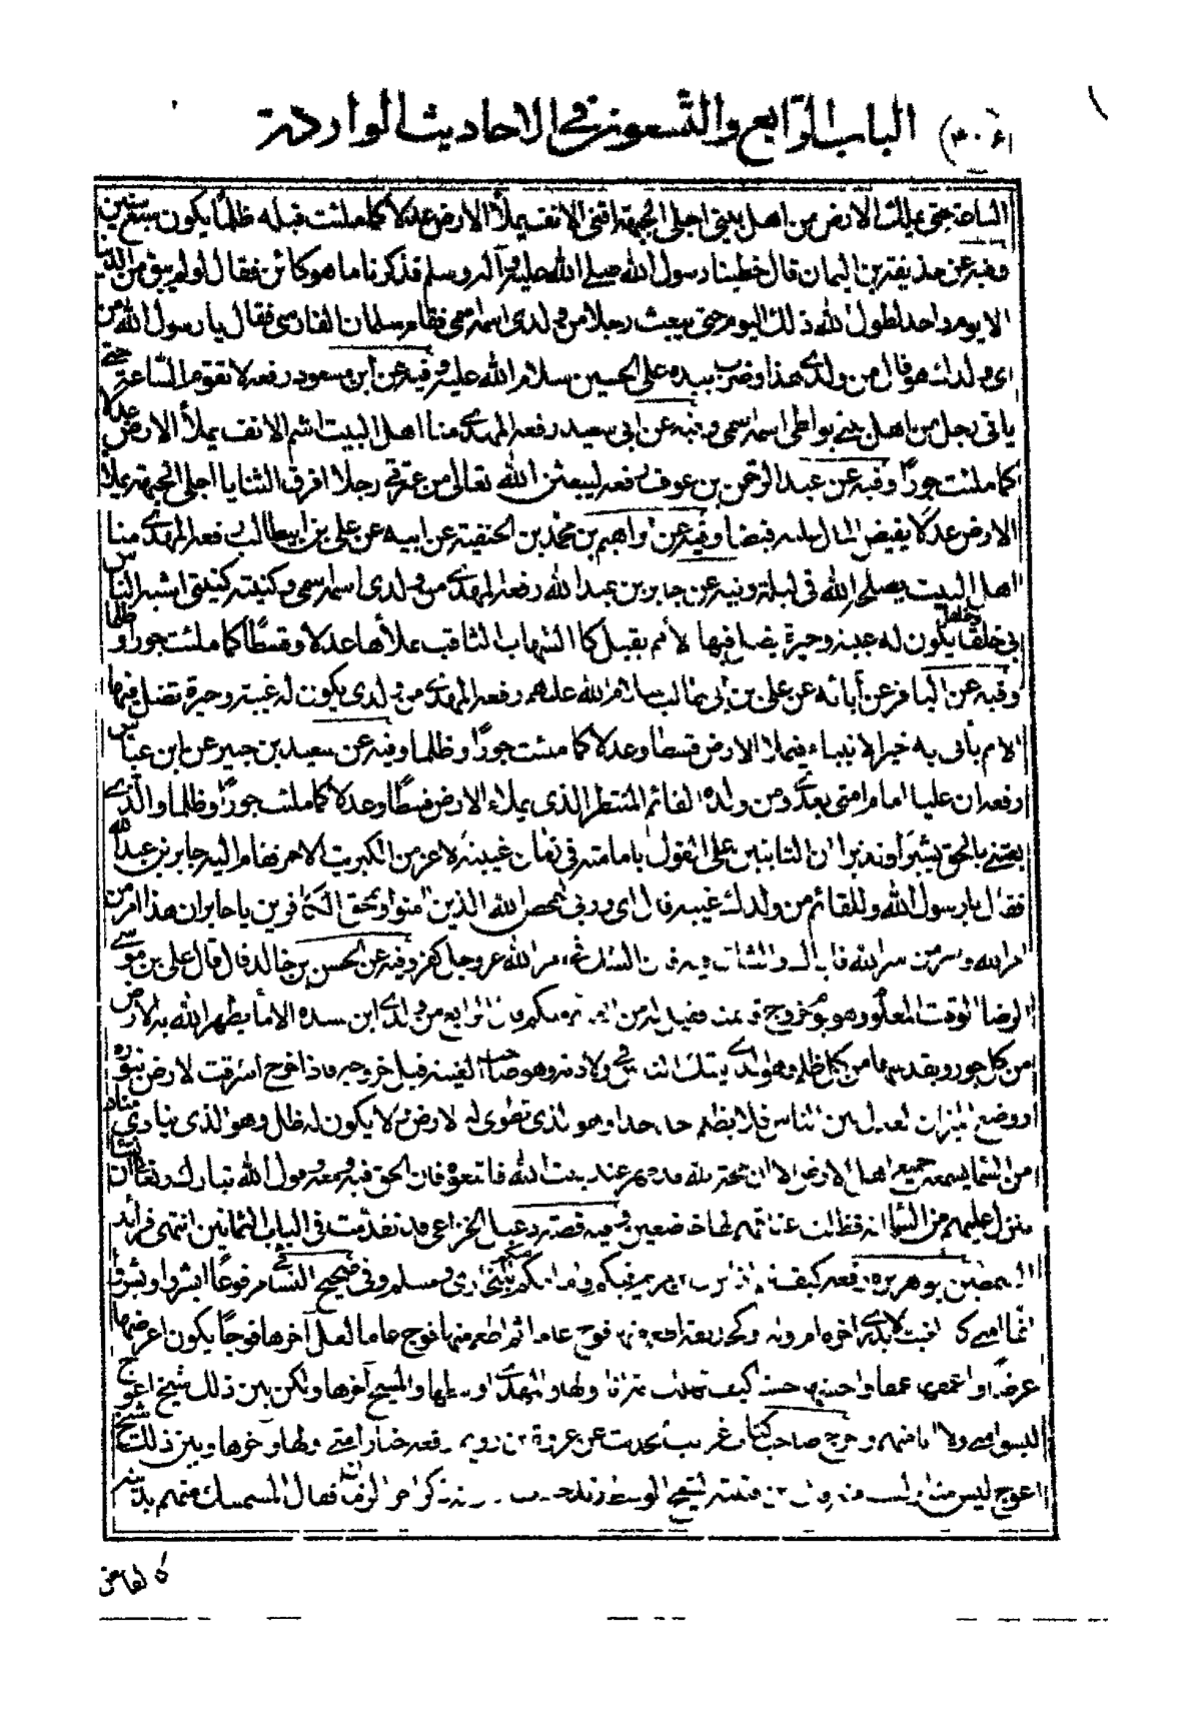 (٣٠٦) الباب الرابع والتسعون في الاحاديث الواردة
الساعة حتى يملك الارض من اهل بيتي اجلى الجبهة اقنى الانف يملأ الارض عدلا كما ملئت قبله ظلما يكون سبع سنين
وفيه عن حذيفة بن اليمان قال خطبنا رسول الله صلى الله عليه وآله وسلم فذكرنا ما هو كائن فقال لو لم يبق من الدنيا
الا يوم واحد لطول الله ذلك اليوم حتى يبعث رجلا من ولدى اسمه اسمى فقام سلمان الفارسى فقال يا رسول الله من
اى ولدك هو قال من ولدى هذا وضرب بيده على الحسين سلام الله عليه وفيه عن ابن مسعود رفعه لا تقوم الساعة حتى
ياتى رجل من اهل بيتى يواطى اسمه اسمى وفيه عن ابى سعيد رفعه المهدى منا اهل البيت اشم الانف يملأ الارض عدلا
كما ملئت جورا وفيه عن عبد الرحمن بن عوف رفعه ليبعثن الله تعالى من عترتى رجلا افرق الثنايا اجلى الجبهة يملأ
الارض عدلا يفيض المال عليه فيضا وفيه عن ابراهيم بن محمد بن الحنفية عن ابيه عن على بن ابيطالب رفعه المهدى منا
اهل البيت يصلح الله فى ليلة وفيه عن جابر بن عبد الله رفعه المهدى من ولدى اسمه اسمى وكنيته كنيتى اشبه الناس
بى خلقا وخلقا يكون له غيبة وحيرة يضل فيها الامم يقبل كالشهاب الثاقب يملأها عدلا وقسطا كما ملئت جورا وظلما
وفيه عن الباقر عن آبائه عن على بن ابى طالب سلام الله عليهم رفعه المهدى من ولدى يكون له غيبة وحيرة تضل فيها
الامم يأتى به خير الانبياء فيملأ الارض قسطا وعدلا كما ملئت جورا وظلما وفيه عن سعيد بن جبير عن ابن عباس
رفعه ان عليا امام امتى بعدى ومن ولده القائم المنتظر الذى يملاء الارض قسطا وعدلا كما ملئت جورا وظلما والذى
بعثنى بالحق بشيرا ونذيرا ان الثابتين على القول بامامته فى زمان غيبته لاعز من الكبريت الاحمر فقام اليه جابر بن عبد الله
فقال يا رسول الله وللقائم من ولدك غيبة قال اى وربى ليمحص الله الذين آمنوا ويمحق الكافرين يا جابر ان هذا امر من
امر الله وسر من سر الله فاياك والشك فيه فان الشك فى امر الله عز وجل كفر وفيه عن الحسن بن خالد قال قال على بن موسى
الرضا الوقت المعلوم وهو يوم خروج قائمنا فقيل له من القائم منكم قال الرابع من ولدى ابن سيدة الاماء يطهر الله به الارض
من كل جور ويقدسها من كل ظلم وهو الذى يشك الناس فى ولادته وهو صاحب الغيبة قبل خروجه فاذا خرج اشرقت الارض بنوره
ووضع ميزان العدل بين الناس فلا يظلم احد احدا وهو الذى تطوى له الارض ولا يكون له ظل وهو الذى ينادى مناد
من السماء يسمعه جميع اهل الارض الا ان حجة الله قد ظهر عند بيت الله فاتبعوه فان الحق فيه ومعه وقول الله تبارك وتعالى ان نشأ
ننزل عليهم من السماء آية فظلت اعناقهم لها خاضعين وفيه قصة دعبل الخزاعى قد تقدمت فى الباب الثمانين انتهى فرائد
السمطين ابو هريرة رفعه كيف انتم اذا نزل ابن مريم فيكم وامامكم منكم للبخارى ومسلم وفى صحيح النسائى مرفوعا ابشروا وبشروا
انما امتى كالغيث لا يدرى آخره ام اوله او كحديقة اطعم منها فوج عاما ثم اطعم منها فوج عاما لعل آخرها فوجا يكون اعرضها
عرضا واعمقها عمقا واحسنها حسنا كيف تهلك امة انا اولها والمهدى اوسطها والمسيح آخرها ولكن بين ذلك شيخ اعوج
ليسوا منى ولا انا منهم وخرج صاحب كتاب غريب الحديث عن عروة بن رويم رفعه خيار امتى اولها وآخرها وبين ذلك شيخ
اعوج ليس منك ولست منه
كالقابض